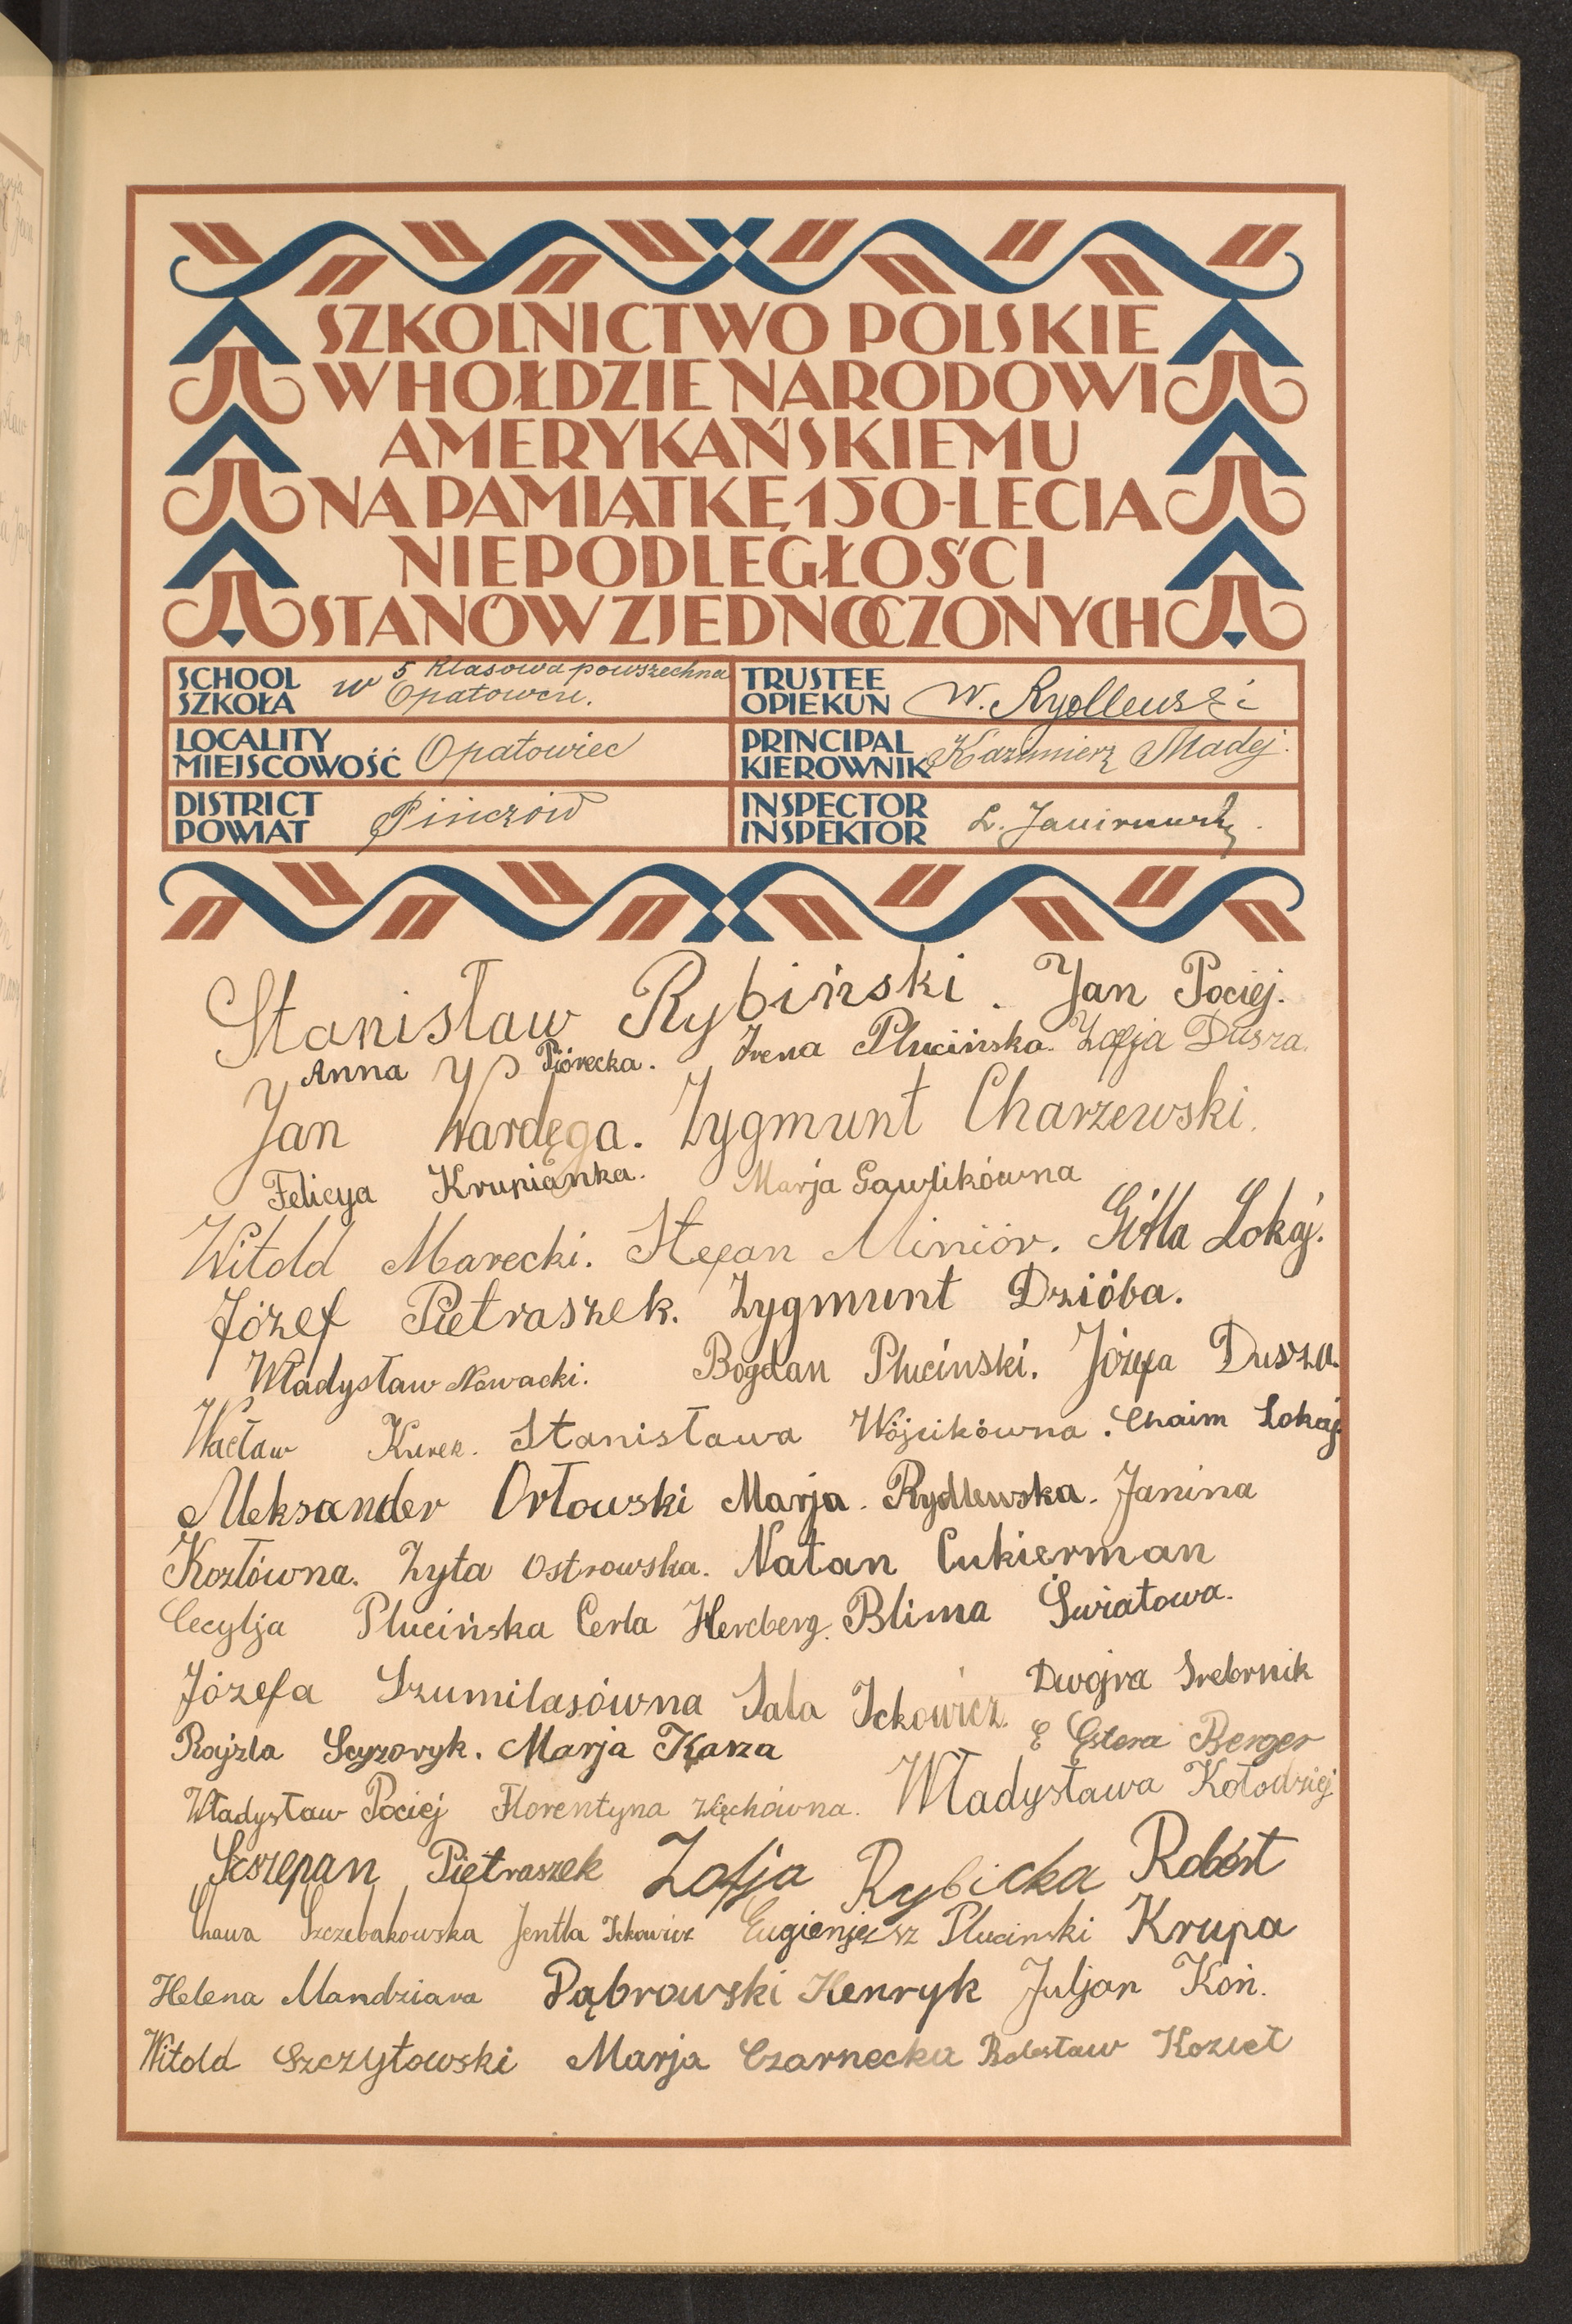 SZKOLNICTWO POLSKIE
W HOŁDZIE NARODOWI
AMERYKAŃSKIEMU
NA PAMIĄTKĘ 150-LECIA
NIEPODLEGŁOŚCI
STANÓW ZJEDNOCZONYCH
SCHOOL
SZKOŁA
w 5 Klasowa powszechna
Opatowcu.
TRUSTEE
OPIEKUN
W. Rydlewski
LOCALITY
MIEJSCOWOŚĆ
Opatowiec
PRINCIPAL
KIEROWNIK
Kazimierz Madej.
DISTRICT
POWIAT
Pińczów
INSPECTOR
INSPEKTOR
L.
Stanisław Rybiński. Jan Pociej.
Anna Piórecka. Irena Plucińska. Zofja Dusza.
Jan Wardęga. Zygmunt Charzewski.
Felicya Krupianka. Marja Gawlikówna
Witold Marecki. Stefan Miniór. Gitla Lokaj.
Józef Pietraszek. Zygmunt Dzióba.
Władysław Nowacki. Bogdan Pluciński. Józefa Dusza.
Wacław Kurek. Stanisława Wójcikówna. Chaim Lokaj.
Aleksander Orłowski Marja. Rydlewska. Janina
Kozłówna. Zyta Ostrowska. Natan Cukierman
Cecylja Plucińska Cerla Hercberg. Blima Światowa.
Józefa Szumilasówna Sala Ickowicz. Dwojra Srebrnik
Rojzla Scyzoryk. Marja Karza E Estera Berger
Władysław Pociej Florentyna Węchówna. Władysława Kołodziej
Szczepan Pietraszek Zofja Rybicka Robert
Chawa Szczebakowska Jentla Ickowicz Eugienjusz Plucinski Krupa
Helena Mandziara Dąbrowski Henryk Juljan Koń.
Witold Szczytowski Marja Czarnecka Bolesław Kozieł